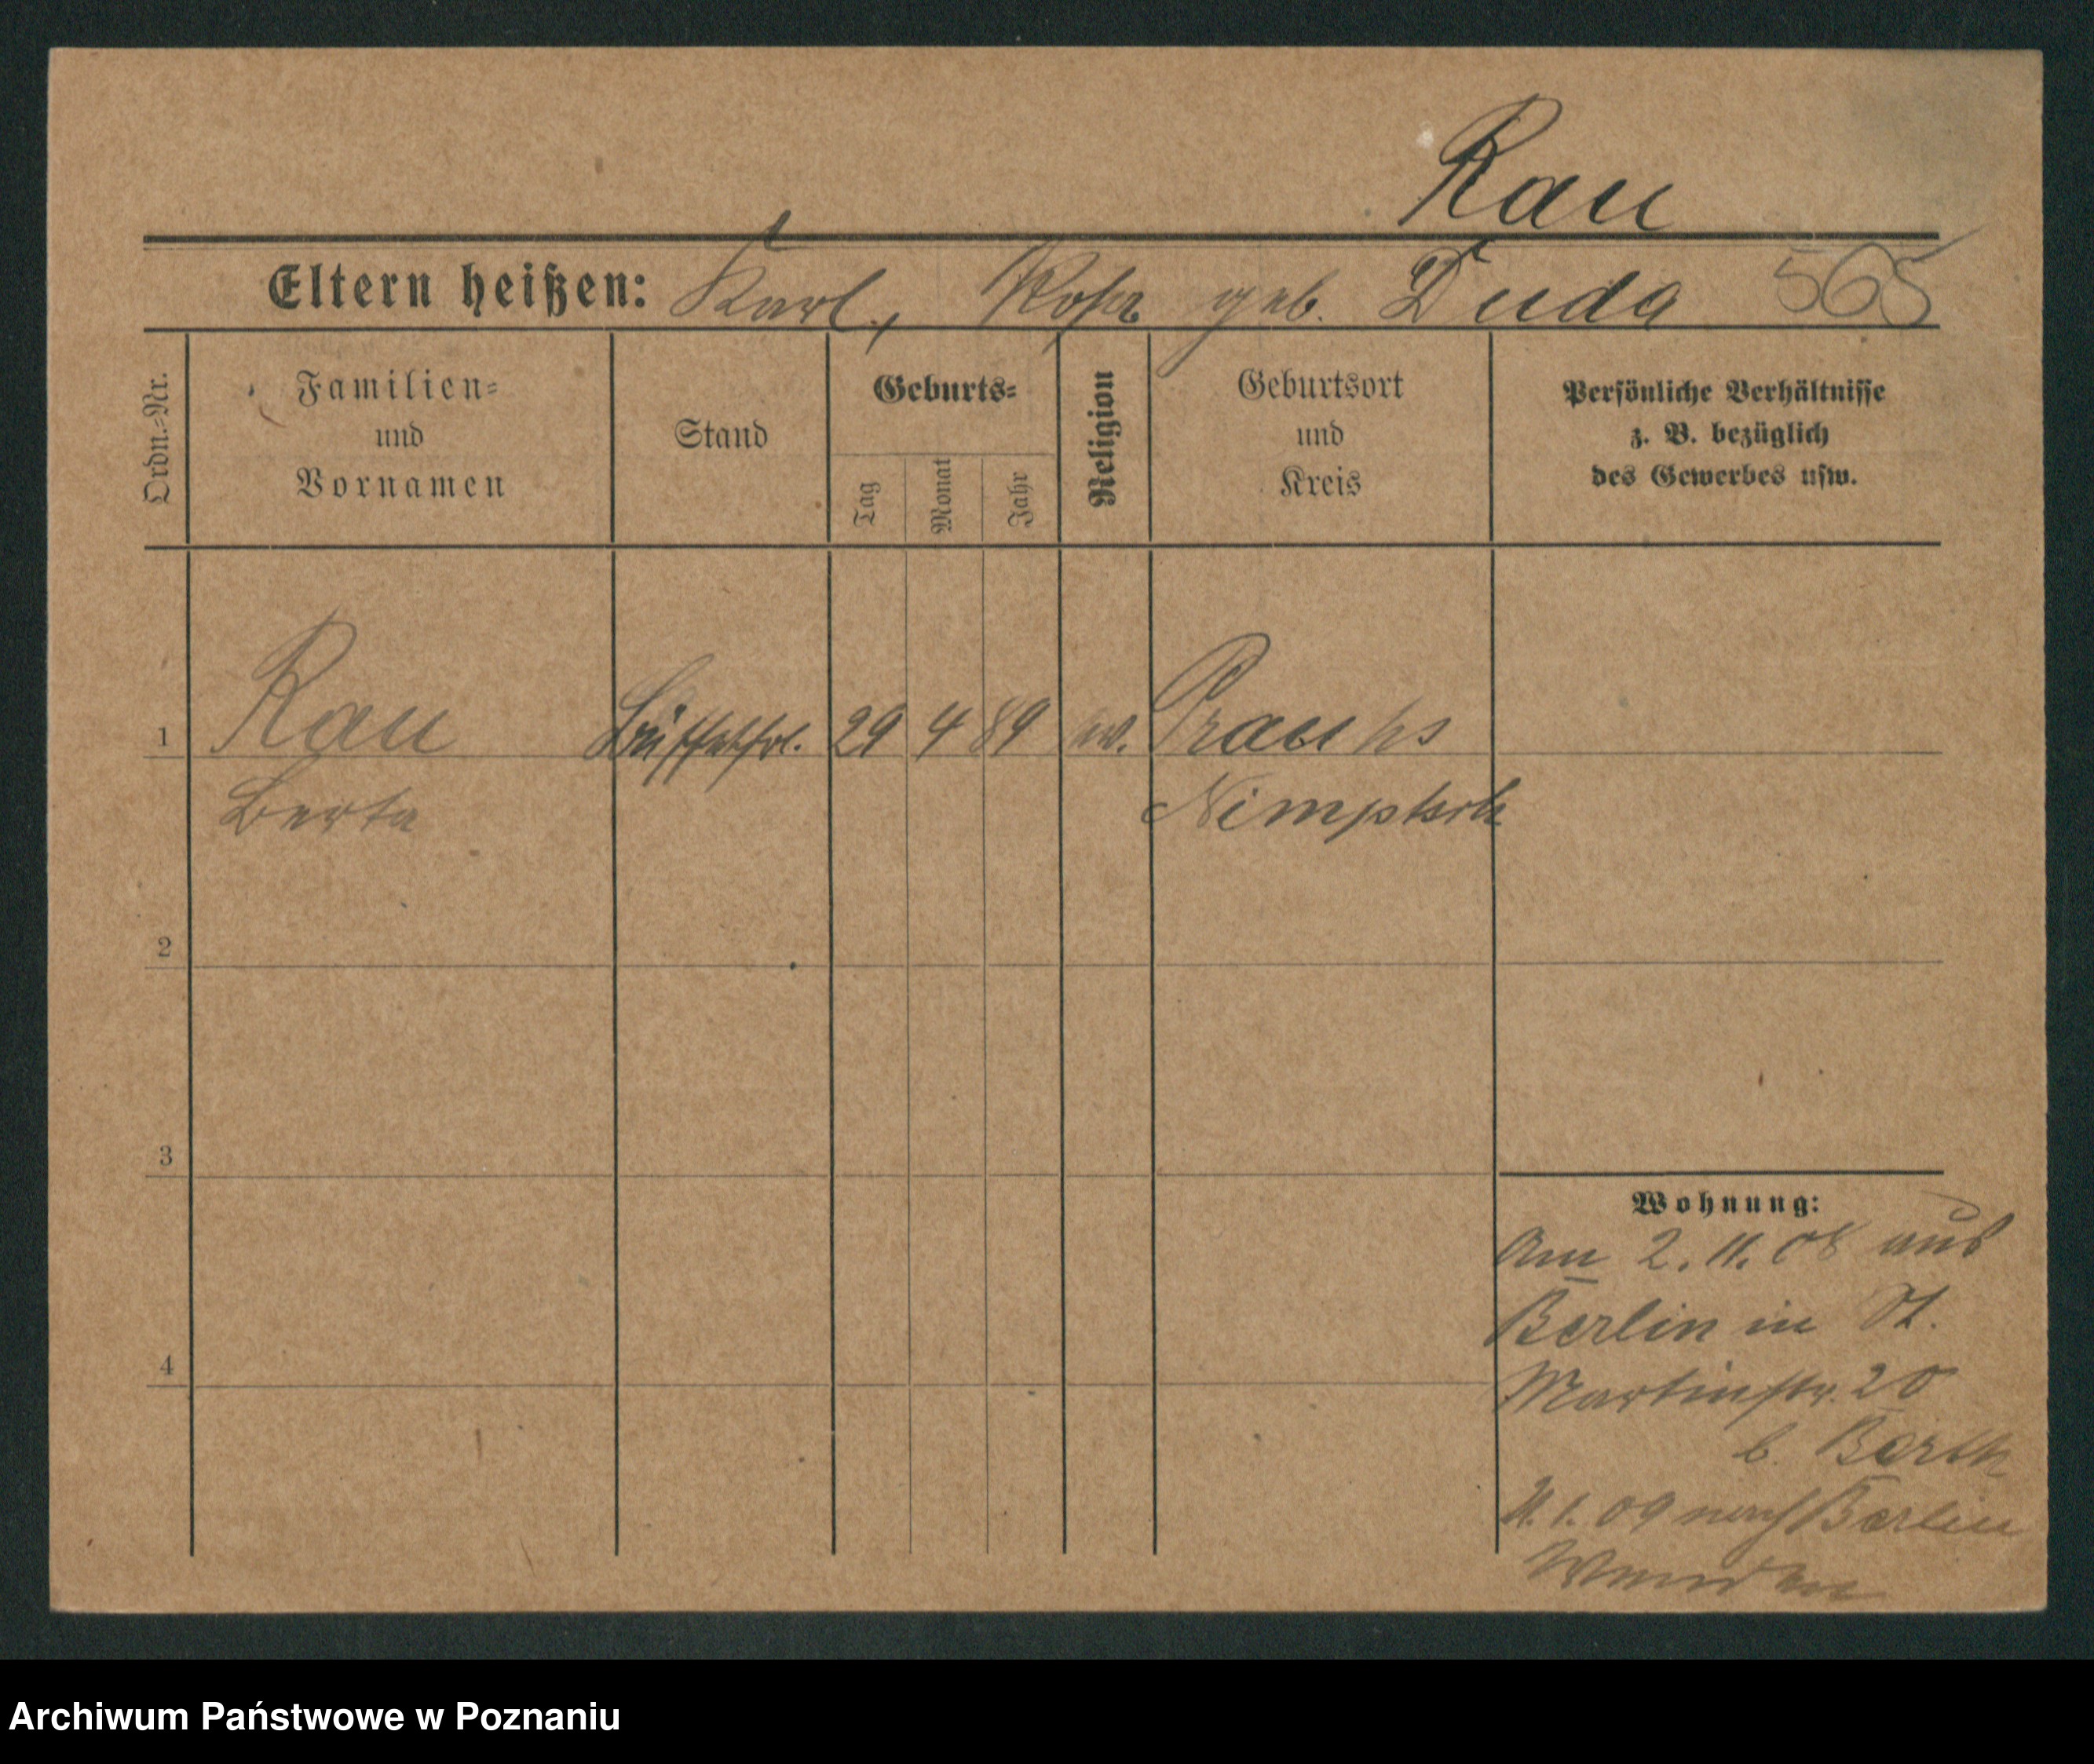 Rau
Eltern heißen: Karl, Rosa geb. Duda 565
Ordn.-Nr.
Familien-
und
Vornamen
Stand
Geburts-
Tag
Monat
Jahr
Religion
Geburtsort
und
Kreis
Persönliche Verhältnisse
z. B. bezüglich
des Gewerbes usw.
1 Rau Büffetfrl. 29 4 89 ev.
Berta Nimptsch
2
3
4
Wohnung:
Am 2. 11. 08 aus
Berlin in St.
Martinstr. 20
b. Barth
11. 1. 09 nach Berlin
Archiwum Państwowe w Poznaniu